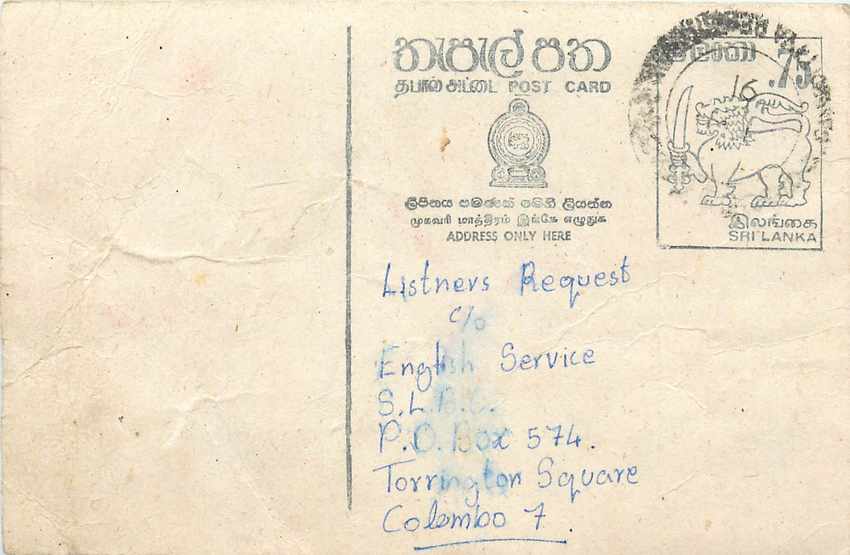 තැපැල් පත
தபால் அட்டை POST CARD
ලිපිනය පමණක් මෙහි ලියන්න
முகவரி மாத்திரம் இங்கே எழுதுக
ADDRESS ONLY HERE
ශ්‍රී ලංකා .75
16
இலங்கை
SRI LANKA
Listners Request
c/o
English Service
S.L.B.C.
P.O. Box 574.
Torrington Square
Colombo 7